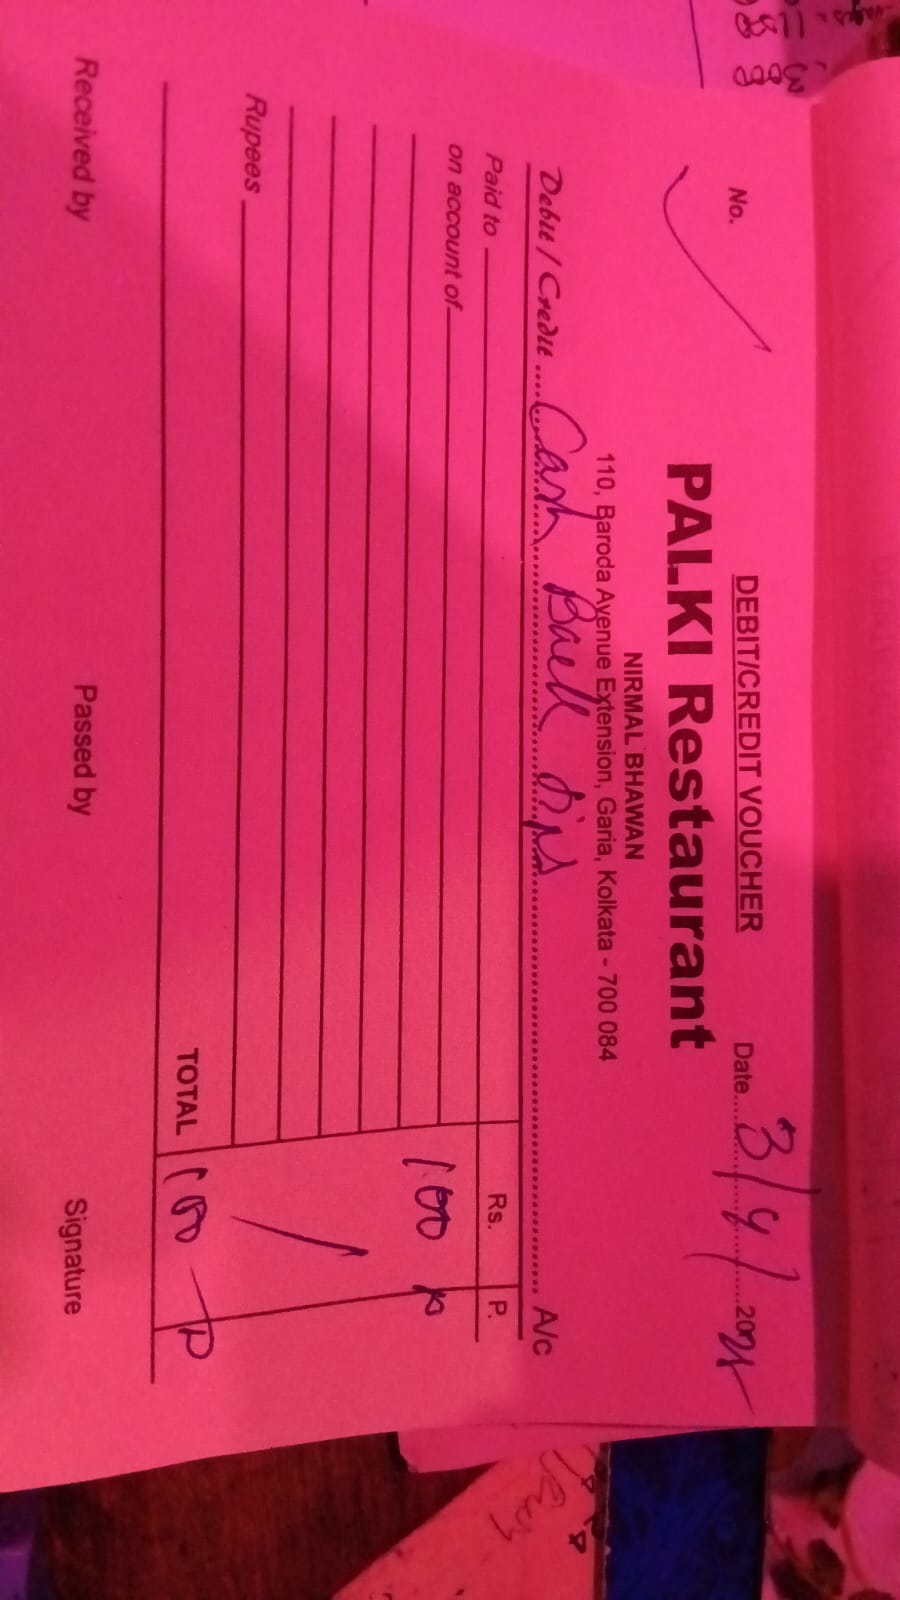 DEBIT/CREDIT VOUCHER
No.
Date 3/4/2025
PALKI Restaurant
NIRMAL BHAWAN
110, Baroda Avenue Extension, Garia, Kolkata - 700 084
Debit / Credit Cash Back A/c
Paid to Rs. P.
on account of
100
Rupees
TOTAL 100
Received by Passed by Signature